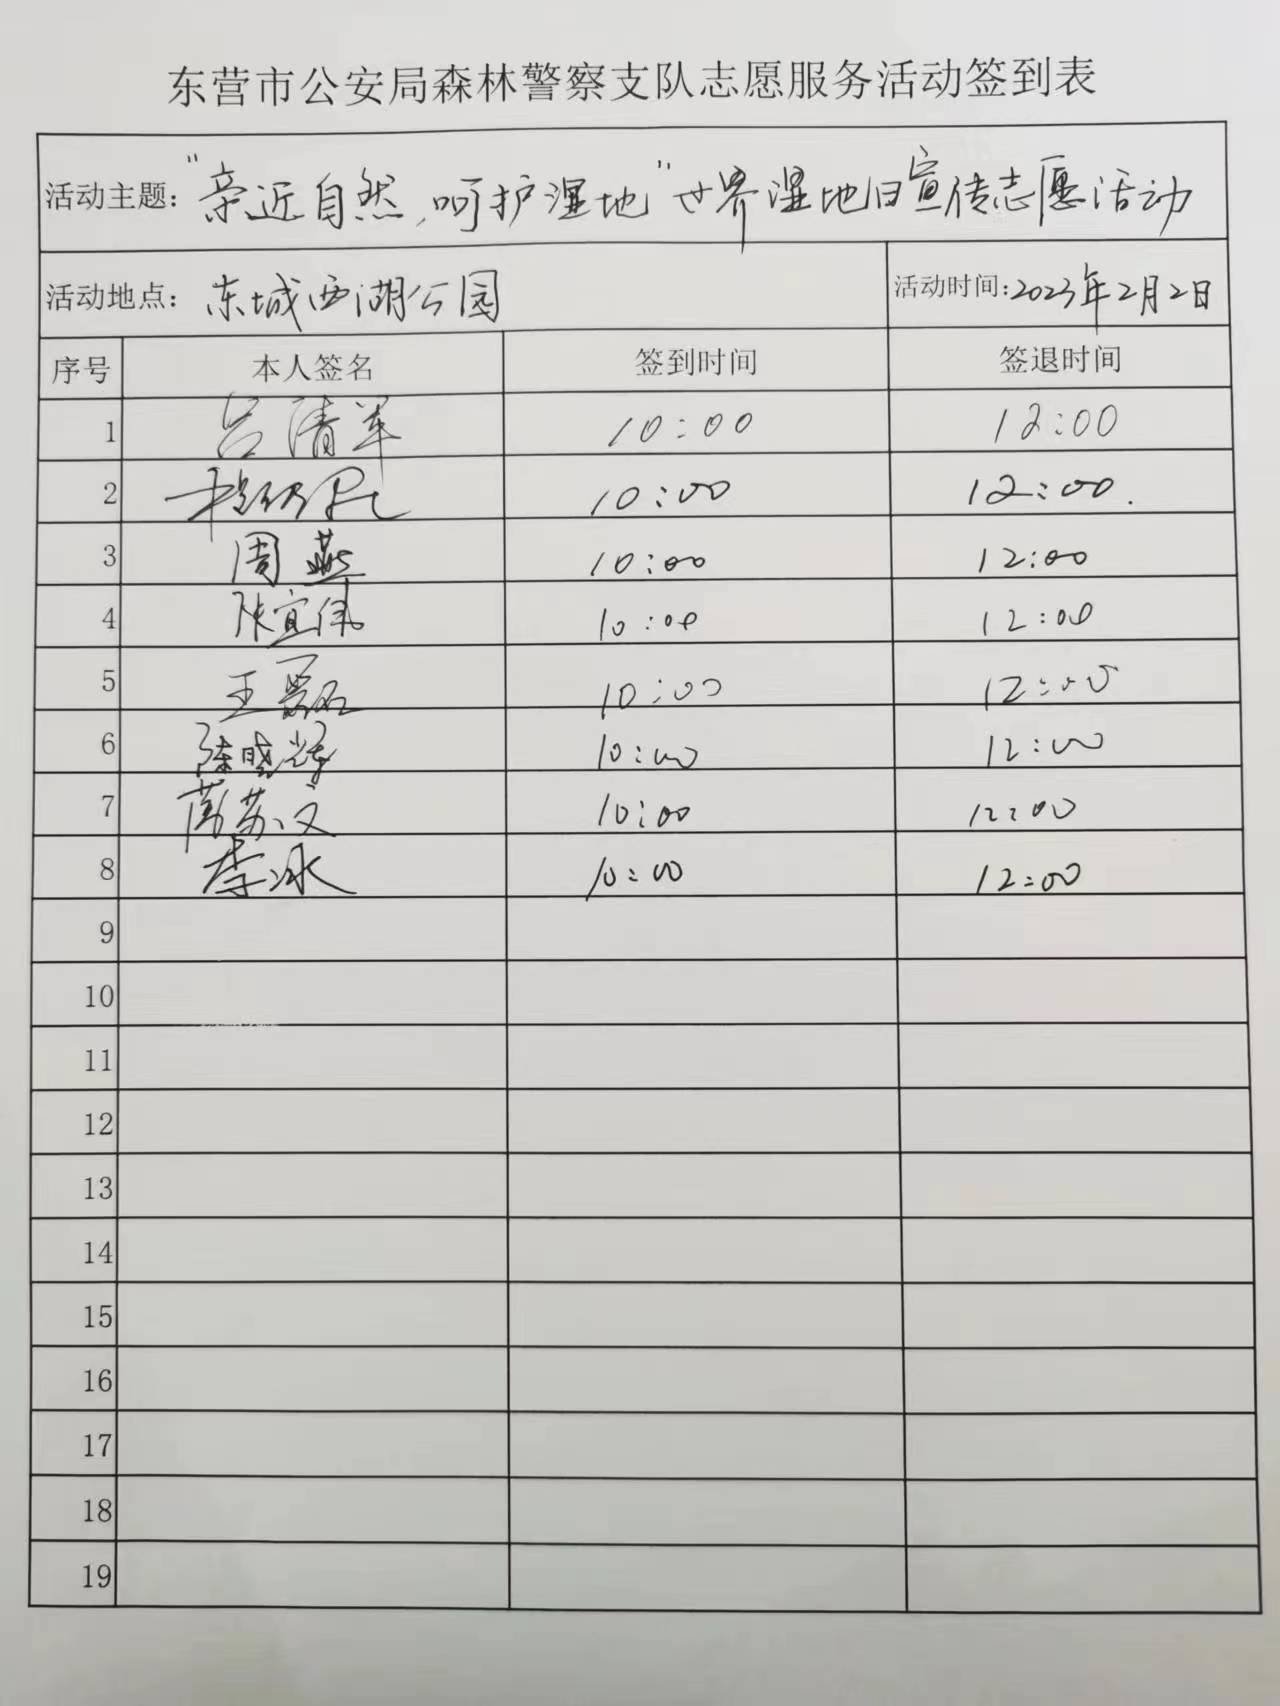 东营市公安局森林警察支队志愿服务活动签到表
活动主题：“亲近自然，呵护湿地”世界湿地日宣传志愿活动
活动地点：东城西湖公园 活动时间：2023年2月2日
序号 本人签名 签到时间 签退时间
1 吕清军 10:00 12:00
2 10:00 12:00.
3 周燕 10:00 12:00
4 张宜佩 10:00 12:00
5 王磊 10:00 12:00
6 陈晓辉 10:00 12:00
7 苏文 10:00 12:00
8 李冰 10:00 12:00
9
10
11
12
13
14
15
16
17
18
19